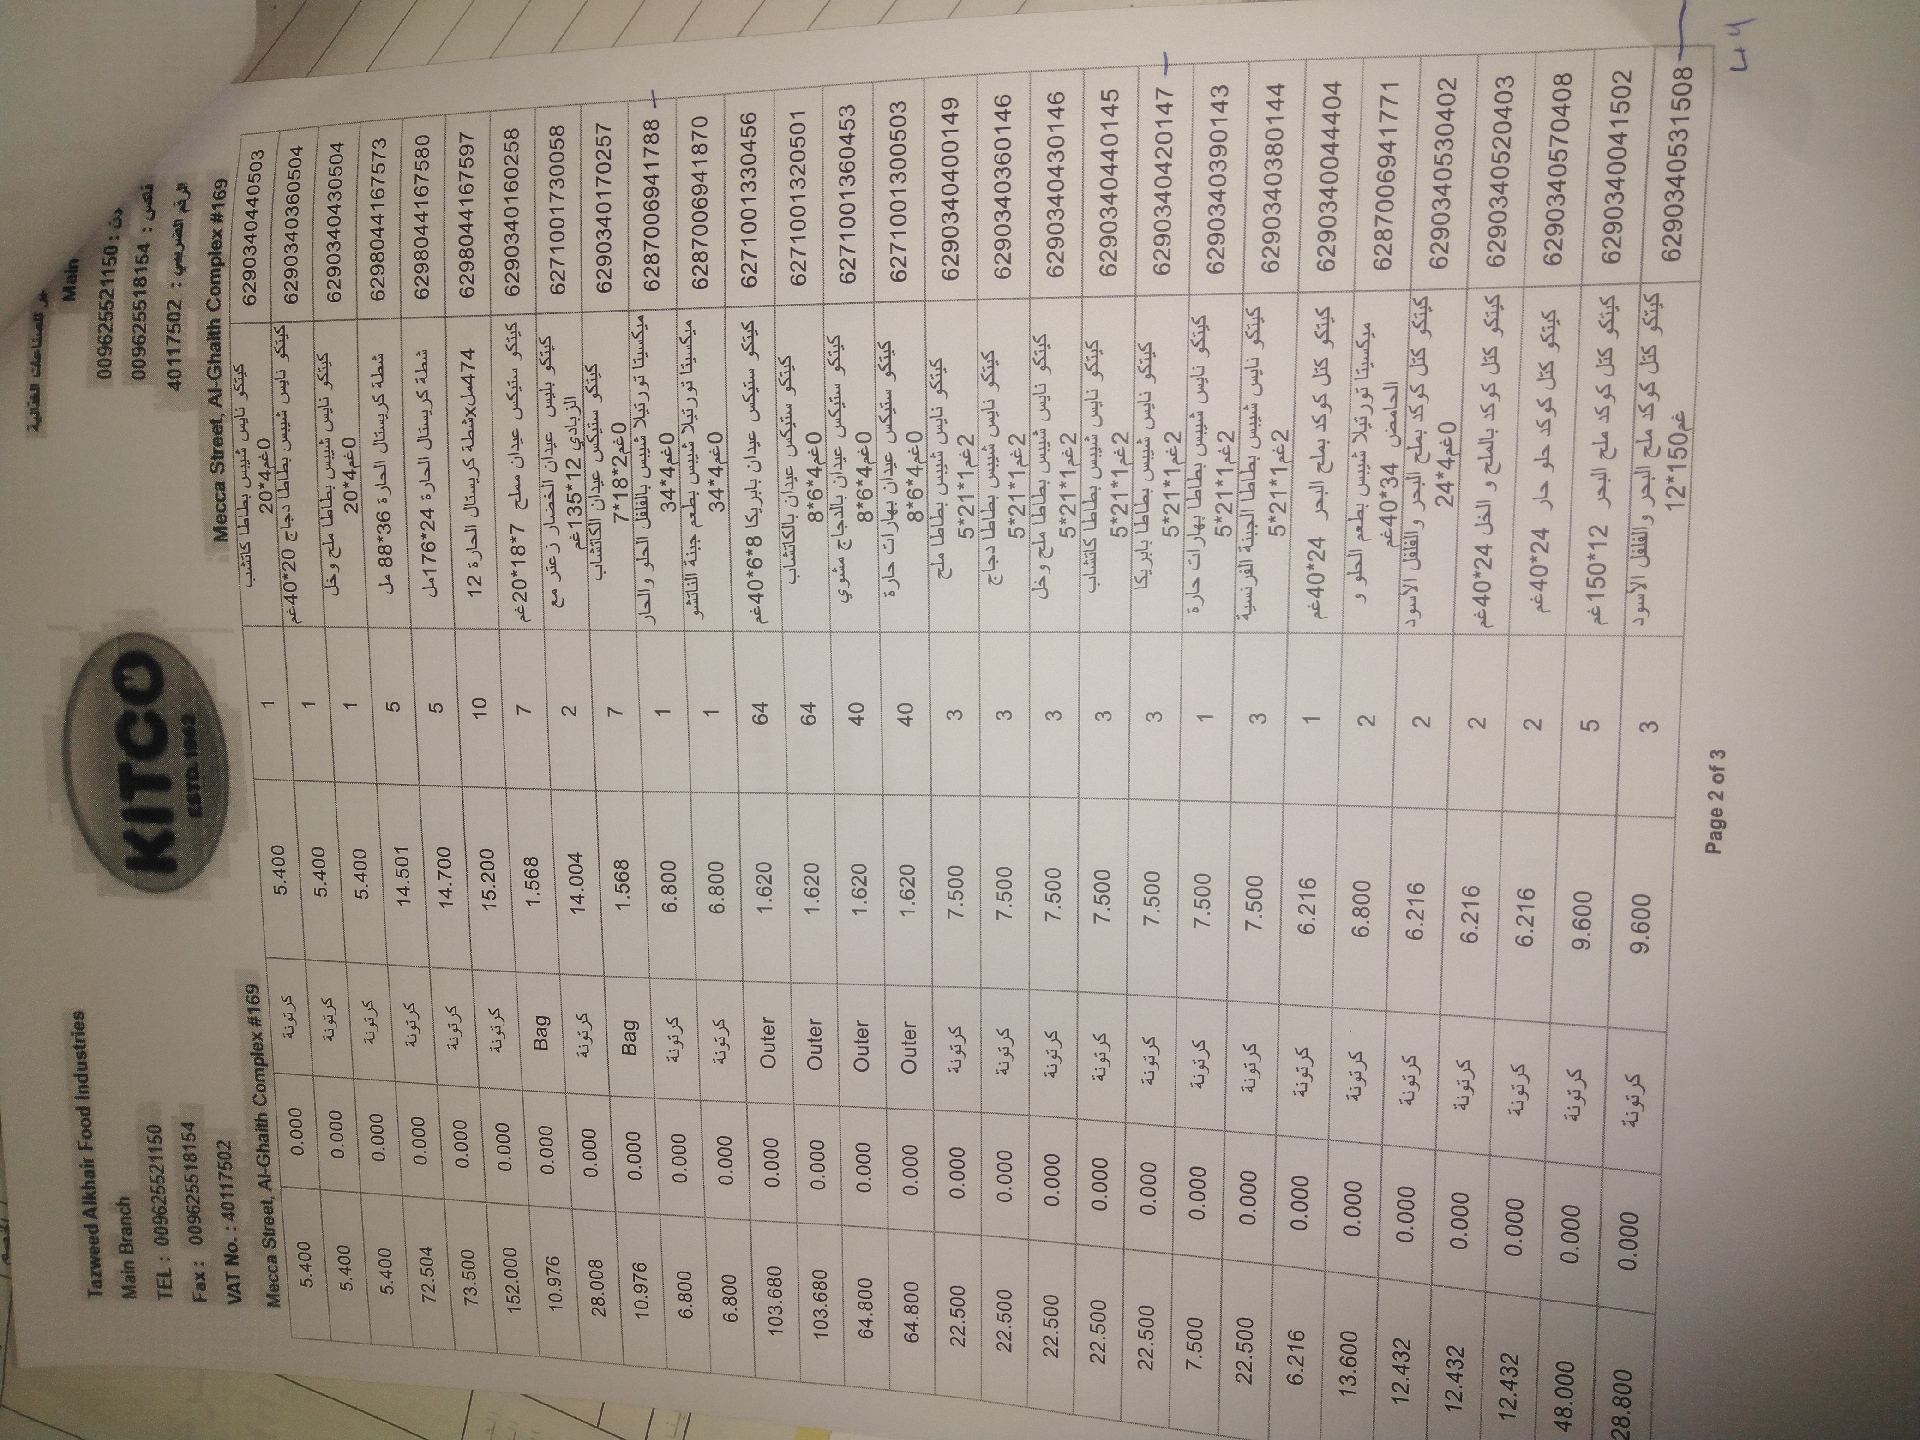 Tazweed Alkhair Food Industries
Main Branch
TEL : 0096255521150
Fax : 0096255518154
VAT No. : 40117502
Mecca Street, Al-Ghaith Complex #169
KITCO
ESTD. 1962
Main
0096255521150 :
0096255518154 : فاكس
الرقم الضريبي : 40117502
Mecca Street, Al-Ghaith Complex #169
5.400 0.000 كرتونة 5.400 1 كيتكو نايس شيبس بطاطا كاتشب 20*4غم0 6290340440503
5.400 0.000 كرتونة 5.400 1 كيتكو نايس شيبس بطاطا دجاج 20*40غم 6290340360504
5.400 0.000 كرتونة 5.400 1 كيتكو نايس شيبس بطاطا ملح وخل 20*4غم0 6290340430504
72.504 0.000 كرتونة 14.501 5 شطة كريستال الحارة 36*88 مل 6298044167573
73.500 0.000 كرتونة 14.700 5 شطة كريستال الحارة 24*176مل 6298044167580
152.000 0.000 كرتونة 15.200 10 474ملxشطة كريستال الحارة 12 6298044167597
10.976 0.000 Bag 1.568 7 كيتكو ستيكس عيدان مملح 7*18*20غم 6290340160258
28.008 0.000 كرتونة 14.004 2 كيتكو بليس عيدان الخضار زعتر مع الزبادي 12*135غم 6271001730058
10.976 0.000 Bag 1.568 7 كيتكو ستيكس عيدان الكاتشاب 7*18*2غم0 6290340170257
6.800 0.000 كرتونة 6.800 1 ميكسيتا تورتيلا شيبس بالفلفل الحلو والحار 34*4غم0 6287006941788
6.800 0.000 كرتونة 6.800 1 ميكسيتا تورتيلا شيبس بطعم جبنة الناتشو 34*4غم0 6287006941870
103.680 0.000 Outer 1.620 64 كيتكو ستيكس عيدان بابريكا 8*6*40غم 6271001330456
103.680 0.000 Outer 1.620 64 كيتكو ستيكس عيدان بالكاتشاب 8*6*4غم0 6271001320501
64.800 0.000 Outer 1.620 40 كيتكو ستيكس عيدان بالدجاج مشوي 8*6*4غم0 6271001360453
64.800 0.000 Outer 1.620 40 كيتكو ستيكس عيدان بهارات حارة 8*6*4غم0 6271001300503
22.500 0.000 كرتونة 7.500 3 كيتكو نايس شيبس بطاطا ملح 5*21*1غم2 6290340400149
22.500 0.000 كرتونة 7.500 3 كيتكو نايس شيبس بطاطا دجاج 5*21*1غم2 6290340360146
22.500 0.000 كرتونة 7.500 3 كيتكو نايس شيبس بطاطا ملح وخل 5*21*1غم2 6290340430146
22.500 0.000 كرتونة 7.500 3 كيتكو نايس شيبس بطاطا كاتشاب 5*21*1غم2 6290340440145
22.500 0.000 كرتونة 7.500 3 كيتكو نايس شيبس بطاطا بابريكا 5*21*1غم2 6290340420147
7.500 0.000 كرتونة 7.500 1 كيتكو نايس شيبس بطاطا بهارات حارة 5*21*1غم2 6290340390143
22.500 0.000 كرتونة 7.500 3 كيتكو نايس شيبس بطاطا الجبنة الفرنسية 5*21*1غم2 6290340380144
6.216 0.000 كرتونة 6.216 1 كيتكو كتل كوكد بملح البحر 24*40غم 6290340044404
13.600 0.000 كرتونة 6.800 2 ميكسيتا تورتيلا شيبس بطعم الحلو و الحامض 34*40غم 6287006941771
12.432 0.000 كرتونة 6.216 2 كيتكو كتل كوكد بملح البحر والفلفل الاسود 24*4غم0 6290340530402
12.432 0.000 كرتونة 6.216 2 كيتكو كتل كوكد بالملح و الخل 24*40غم 6290340520403
12.432 0.000 كرتونة 6.216 2 كيتكو كتل كوكد حلو حار 24*40غم 6290340570408
48.000 0.000 كرتونة 9.600 5 كيتكو كتل كوكد ملح البحر 12*150غم 6290340041502
28.800 0.000 كرتونة 9.600 3 كيتكو كتل كوكد ملح البحر والفلفل الأسود 12*150غم 6290340531508
Page 2 of 3